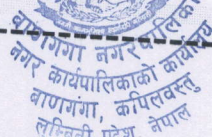 बाणगंगा नगरपालिका
नगर कार्यपालिकाको कार्यालय
बाणगंगा, कपिलवस्तु
लुम्बिनी प्रदेश नेपाल